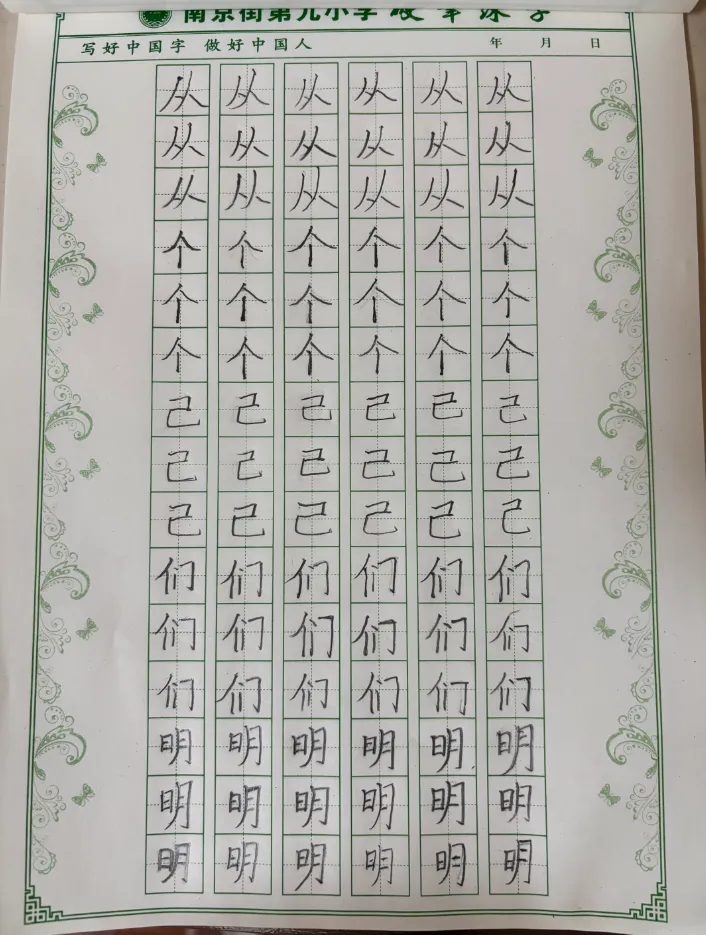 南京街第九小学硬笔
写好中国字 做好中国人 年 月 日
从 从 从 从 从 从
从 从 从 从 从 从
从 从 从 从 从 从
个 个 个 个 个 个
个 个 个 个 个 个
个 个 个 个 个 个
己 己 己 己 己 己
己 己 己 己 己 己
己 己 己 己 己 己
们 们 们 们 们 们
们 们 们 们 们 们
们 们 们 们 们 们
明 明 明 明 明 明
明 明 明 明 明 明
明 明 明 明 明 明